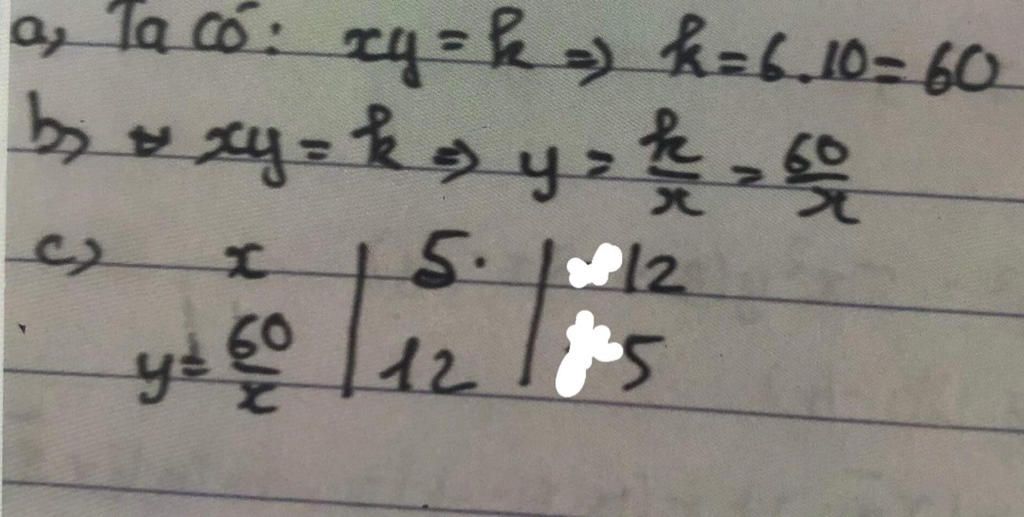 a, Ta có: xy = k => k = 6.10 = 60
b, xy = k => y = k/x = 60/x
c, x | 5. | 12
y = 60/x | 12 | 5